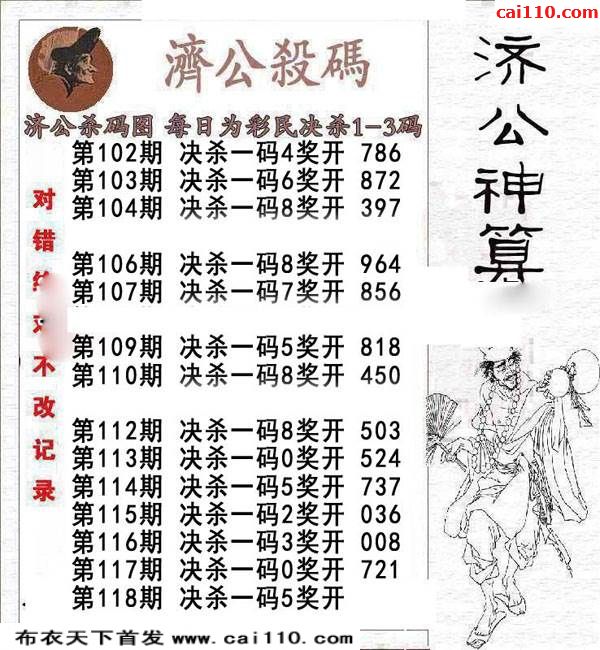 cai110.com
濟公殺碼
济公神算
济公杀码图 每日为彩民决杀1-3码
对错 不改记录
第102期 决杀一码4奖开 786
第103期 决杀一码6奖开 872
第104期 决杀一码8奖开 397
第106期 决杀一码8奖开 964
第107期 决杀一码7奖开 856
第109期 决杀一码5奖开 818
第110期 决杀一码8奖开 450
第112期 决杀一码8奖开 503
第113期 决杀一码0奖开 524
第114期 决杀一码5奖开 737
第115期 决杀一码2奖开 036
第116期 决杀一码3奖开 008
第117期 决杀一码0奖开 721
第118期 决杀一码5奖开
布衣天下首发 www.cai110.com